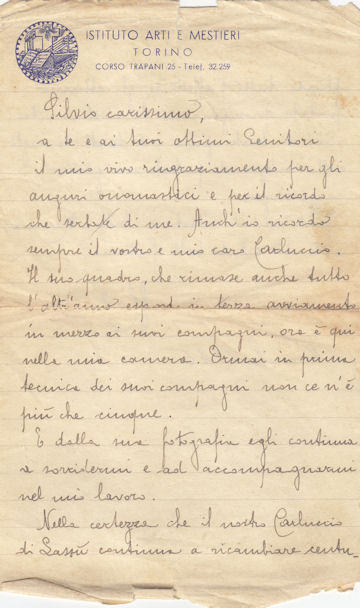 ISTITUTO ARTI E MESTIERI
TORINO
CORSO TRAPANI 25 - Telef. 32.259
Silvio carissimo,
a te e ai tuoi ottimi Genitori
il mio vivo ringraziamento per gli
auguri onomastici e per il ricordo
che serbate di me. Anch'io ricordo
sempre il vostro e mio caro Carluccio.
Il suo quadro, che rimase anche tutto
l'altr'anno esposto in terza avviamento
in mezzo ai suoi compagni, ora è qui
nella mia camera. Ormai in prima
tecnica dei suoi compagni non ce n'è
più che cinque.
E dalla sua fotografia egli continua
a sorridermi e ad accompagnarmi
nel mio lavoro.
Nella certezza che il nostro Carluccio
di Lassù continua a ricambiare centu-